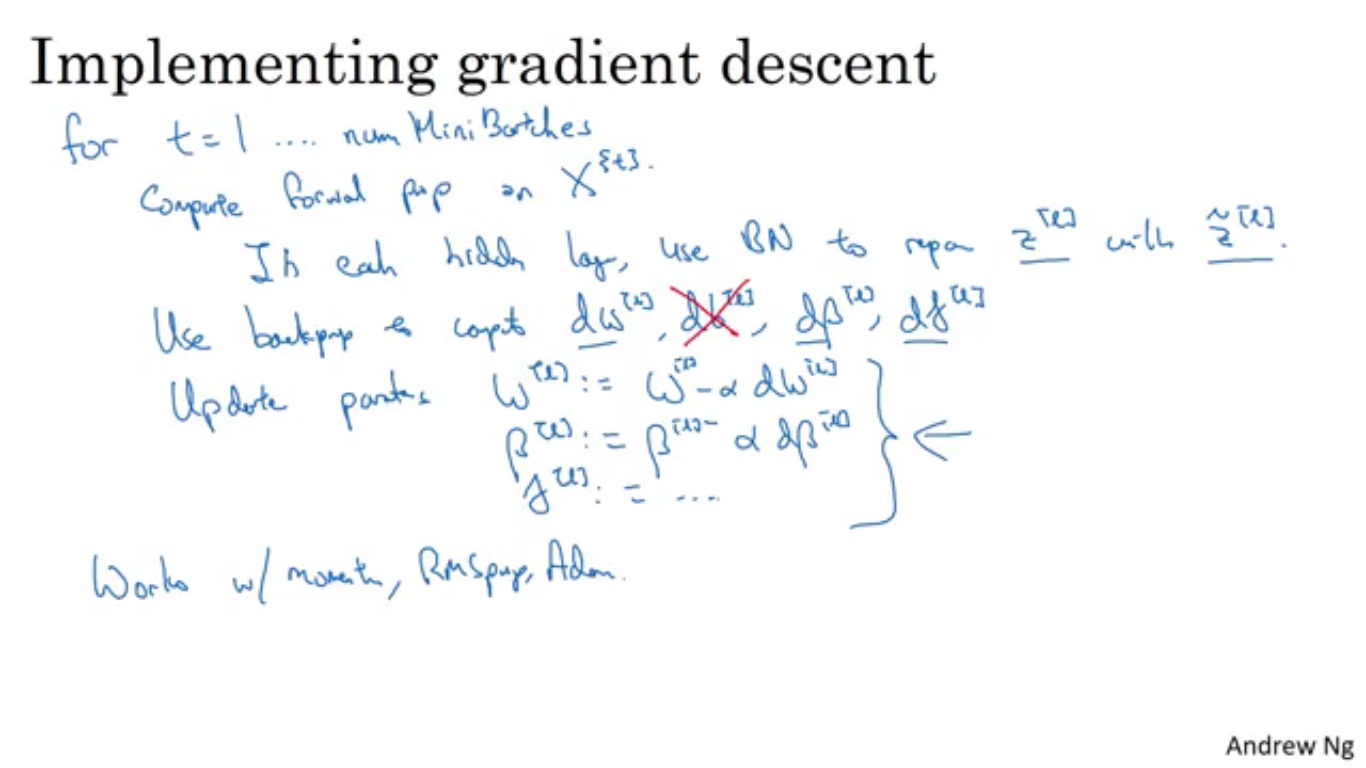 Implementing gradient descent
for t = 1 .... num Mini Batches
Compute forwal prop on X^{t}.
In eah hidden lay, use BN to repa z^[l] with z̃^[l].
Use backprop to compt dw^[l], db^[l], dβ^[l], dγ^[l]
Update parates w^[l] := w^[l] - α dw^[l]
β^[l] := β^[l] - α dβ^[l]
γ^[l] := ....
Works w/ momentn, RMSprop, Adam.
Andrew Ng